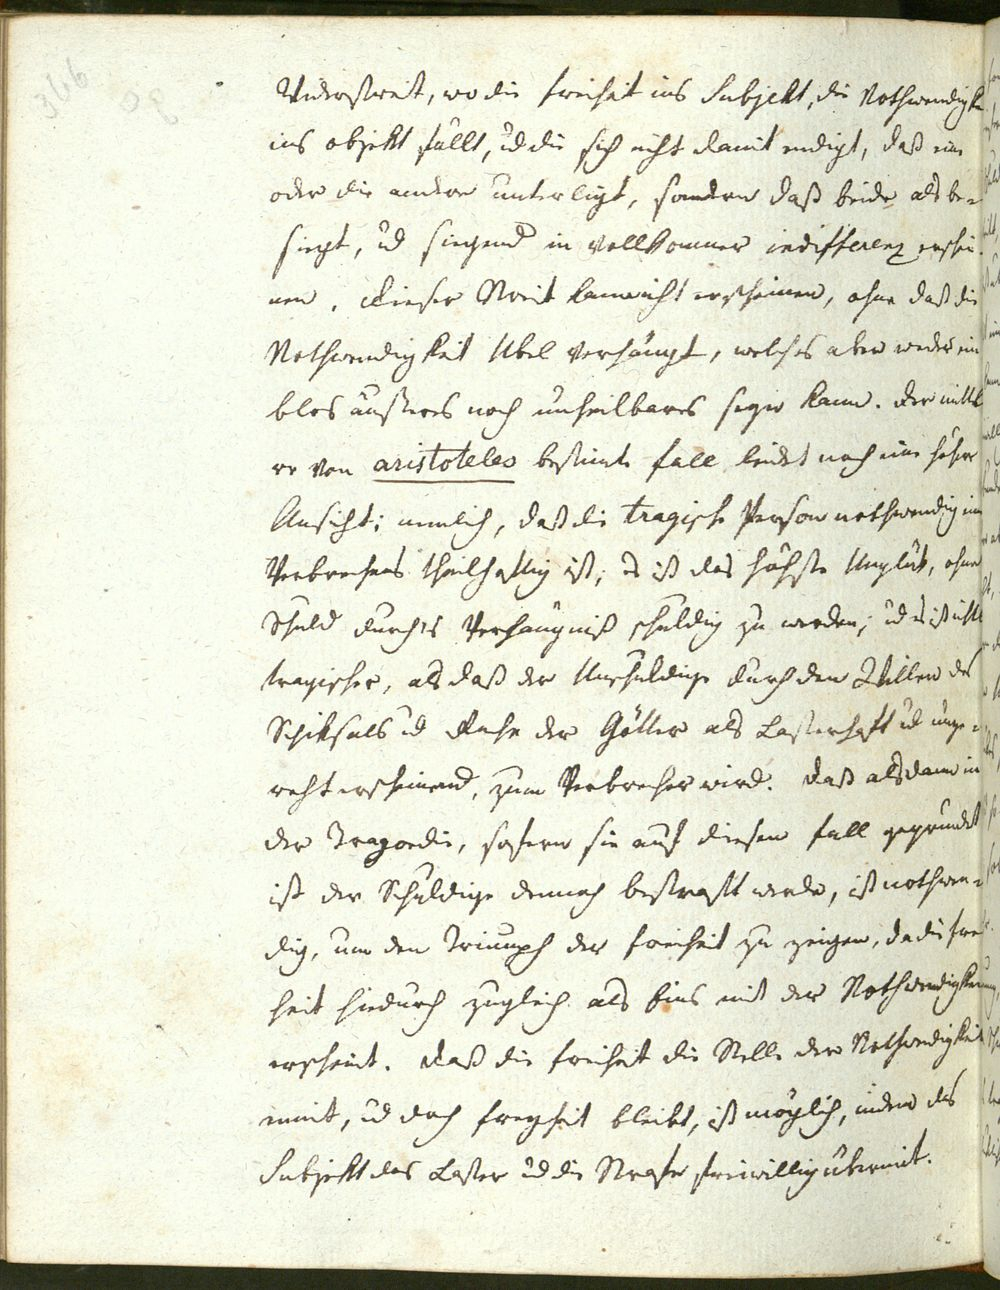 366 30
Widerstreit, wo die freiheit ins Subjekt, die Nothwendigkei
ins objekt fällt, ud die sich nicht damit endigt, daß eine
oder die andere unterligt, sondern daß beide als be-
siegt, ud siegend in vollkommner indifferenz erschei
nen. dieser Streit kann nicht erscheinen, ohne daß die
Nothwendigkeit Übel verhängt, welches aber weder ein
blos äußeres noch unheilbares seyn kann. der mittl
re von aristoteles bestimte fall leidet noch eine höhere
Ansicht; nemlich, daß die tragische Person nothwendig eines
Verbrechens theilhaftig ist; es ist das höchste Unglük, ohne
Schuld durch's Verhängniß schuldig zu werden; ud es ist nichts
tragischer, als daß der Unschuldige durch den Willen des
Schiksals ud Rache der Götter als Lasterhaft ud unge-
recht erscheinend, zum Verbrecher wird. daß alsdann in
der Tragoedie, sofern sie auf diesen fall gegründet
ist der Schuldige dennoch bestraft werde, ist nothwen-
dig, um den Triumph der freiheit zu zeigen, da die frei
heit hiedurch zugleich als Eins mit der Nothwendigkeit
erscheint. daß die freiheit die Stelle der Nothwendigkeit
einnimt, ud doch freyheit bleibt, ist möglich, indem das
Subjekt das Laster ud die Strafe freiwillig übernimt.